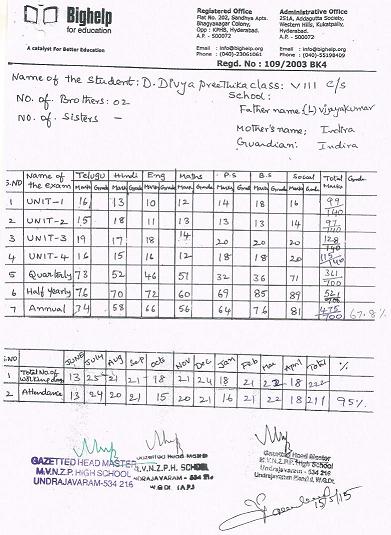 Bighelp
for education
A catalyst For Better Education
Registered Office
Flat No. 202, Sandhya Apts.
Bhagyanagar Colony,
Opp : KPHB, Hyderabad.
A.P. - 500072
Email : info@bighelp.org
Phone : (040)-23061061
Administrative Office
251A, Addagutta Society,
Western Hills, Kukatpally,
Hyderabad.
A.P. - 500072
Email : info@bighelp.org
Phone : (040)-55198409
Regd. No : 109/2003 BK4
Name of the student: D. Divya preethika class: VIII c/s
No. of Brothers: 02 School:
No. of Sisters - Father name: (L) vijayakumar
Mother's name: Indira
Guardian: Indira
S.NO Name of the Exam Telugu Hindi Eng Maths P.S B.S Social Total Marks Grade
Marks Grade Marks Grade Marks Grade Marks Grade Marks Grade Marks Grade Marks Grade
1 UNIT-1 16 13 10 12 14 18 16 99/140
2 UNIT-2 15 18 11 13 13 13 14 97/140
3 UNIT-3 19 17 18 14 20 20 20 128/140
4 UNIT-4 16 15 16 12 18 18 20 115/140
5 Quarterly 73 52 46 51 32 36 71 361/700
6 Half yearly 76 70 72 60 69 85 89 521/700
7 Annual 74 58 66 56 64 76 81 475/700 67.8%
S.NO JUNE JULY Aug Sep Oct NOV Dec Jan Feb Mar April Total %
1 Total No. of Working days 13 25 21 21 18 21 24 18 21 22 18 222
2 Attendance 13 24 20 21 15 20 21 16 21 22 18 211 95%
GAZETTED HEAD MASTER
M.V.N.Z.P. HIGH SCHOOL
UNDRAJAVARAM-534 216
GAZETTED HEAD MASTER
M.V.N.Z.P.H. SCHOOL
UNDRAJAVARAM - 534 216
W.GDt (A.P.)
Gazetted Head Master
M.V.N.Z.P.P. High School
UNDRAJAVARAM
15/5/15